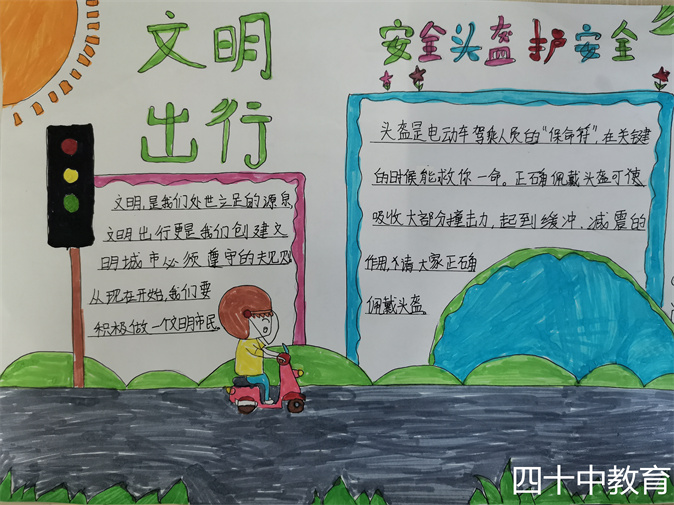 文明
出行
安全头盔护安全
文明，是我们处世立足的源泉
文明出行更是我们创建文
明城市必须遵守的规则
从现在开始，我们要
积极做一个文明市民。
头盔是电动车驾乘人员的“保命符”，在关键
的时候能救你一命。正确佩戴头盔可
吸收大部分撞击力，起到缓冲，减震的
作用，请大家正确
佩戴头盔
四十中教育